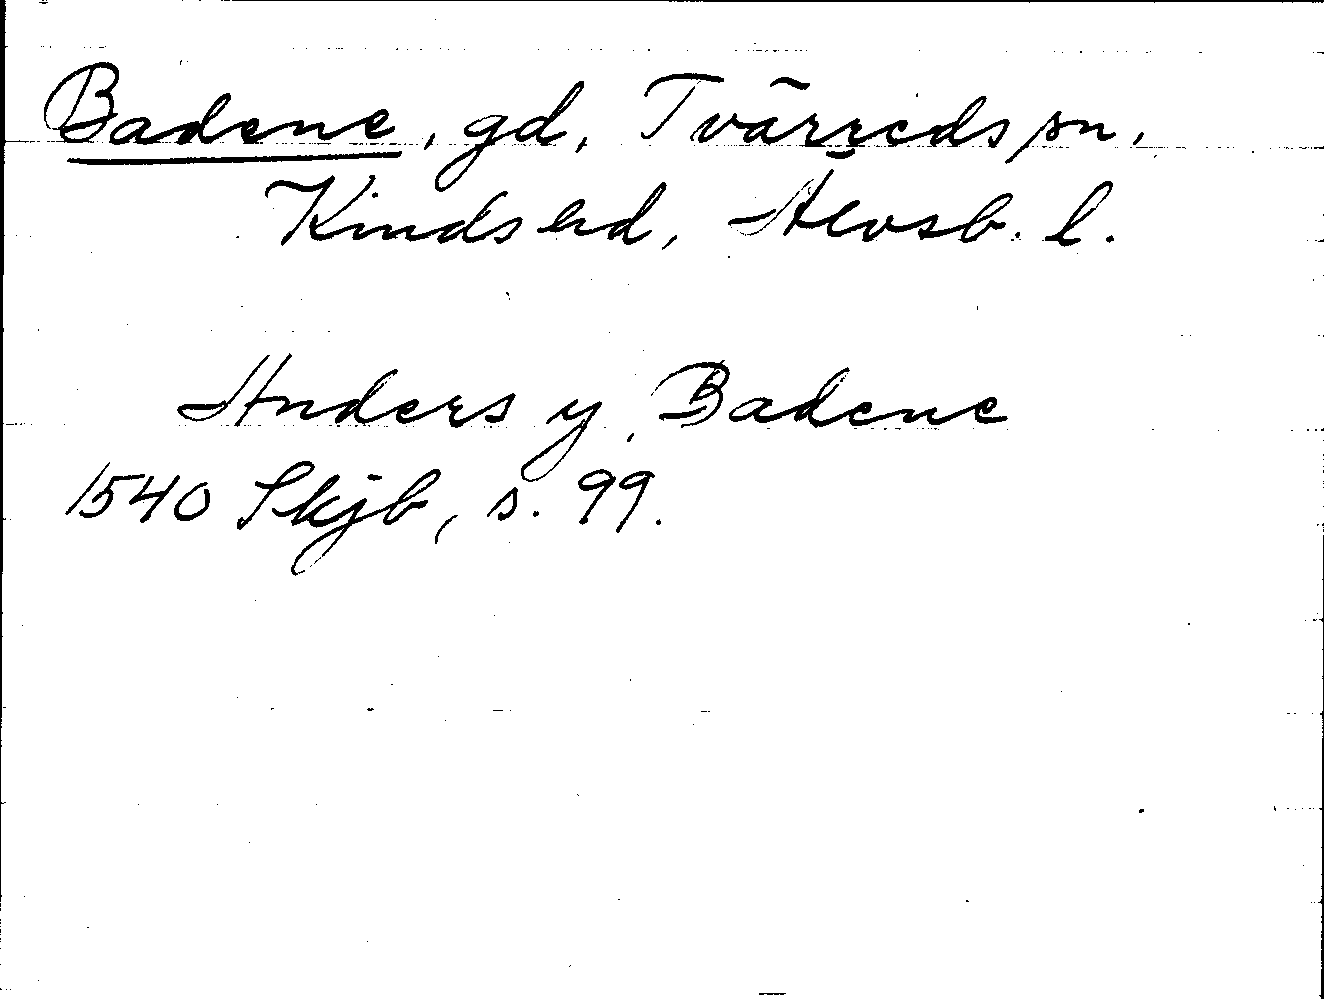 Badene, gd, Tvärreds sn,
Kinds hd, Älvsb. l.
Anders y Badene
1540 Skjb, s. 99.